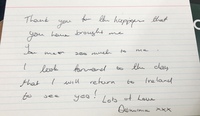 Thank you for the happiness that
you have brought me
so much to me.
I look forward to the day
that I will return to Ireland
to see you! Lots of Love
xxx